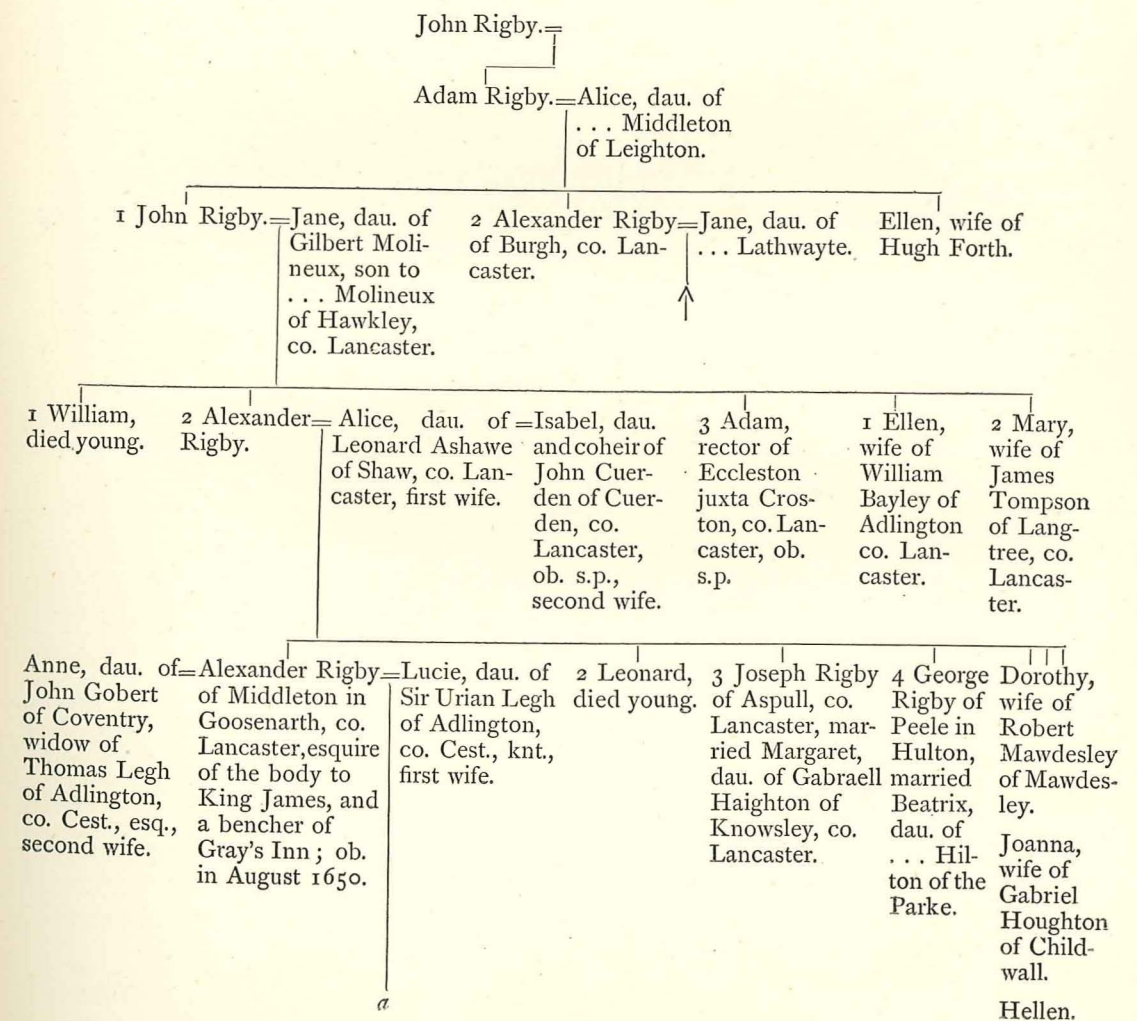 John Rigby.=
Adam Rigby.=Alice, dau. of
. . . Middleton
of Leighton.
1 John Rigby.=Jane, dau. of
Gilbert Moli-
neux, son to
. . . Molineux
of Hawkley,
co. Lancaster.
2 Alexander Rigby=Jane, dau. of
of Burgh, co. Lan- . . . Lathwayte.
caster.
Ellen, wife of
Hugh Forth.
1 William,
died young.
2 Alexander=
Rigby.
Alice, dau. of
Leonard Ashawe
of Shaw, co. Lan-
caster, first wife.
=Isabel, dau.
and coheir of
John Cuer-
den of Cuer-
den, co.
Lancaster,
ob. s.p.,
second wife.
3 Adam,
rector of
Eccleston
juxta Cros-
ton, co. Lan-
caster, ob.
s.p.
1 Ellen,
wife of
William
Bayley of
Adlington
co. Lan-
caster.
2 Mary,
wife of
James
Tompson
of Lang-
tree, co.
Lancas-
ter.
Anne, dau. of=
John Gobert
of Coventry,
widow of
Thomas Legh
of Adlington,
co. Cest., esq.,
second wife.
Alexander Rigby=
of Middleton in
Goosenarth, co.
Lancaster, esquire
of the body to
King James, and
a bencher of
Gray's Inn; ob.
in August 1650.
Lucie, dau. of
Sir Urian Legh
of Adlington,
co. Cest., knt.,
first wife.
2 Leonard,
died young.
3 Joseph Rigby
of Aspull, co.
Lancaster, mar-
ried Margaret,
dau. of Gabraell
Haighton of
Knowsley, co.
Lancaster.
4 George
Rigby of
Peele in
Hulton,
married
Beatrix,
dau. of
. . . Hil-
ton of the
Parke.
Dorothy,
wife of
Robert
Mawdesley
of Mawdes-
ley.
Joanna,
wife of
Gabriel
Houghton
of Child-
wall.
Hellen.
a